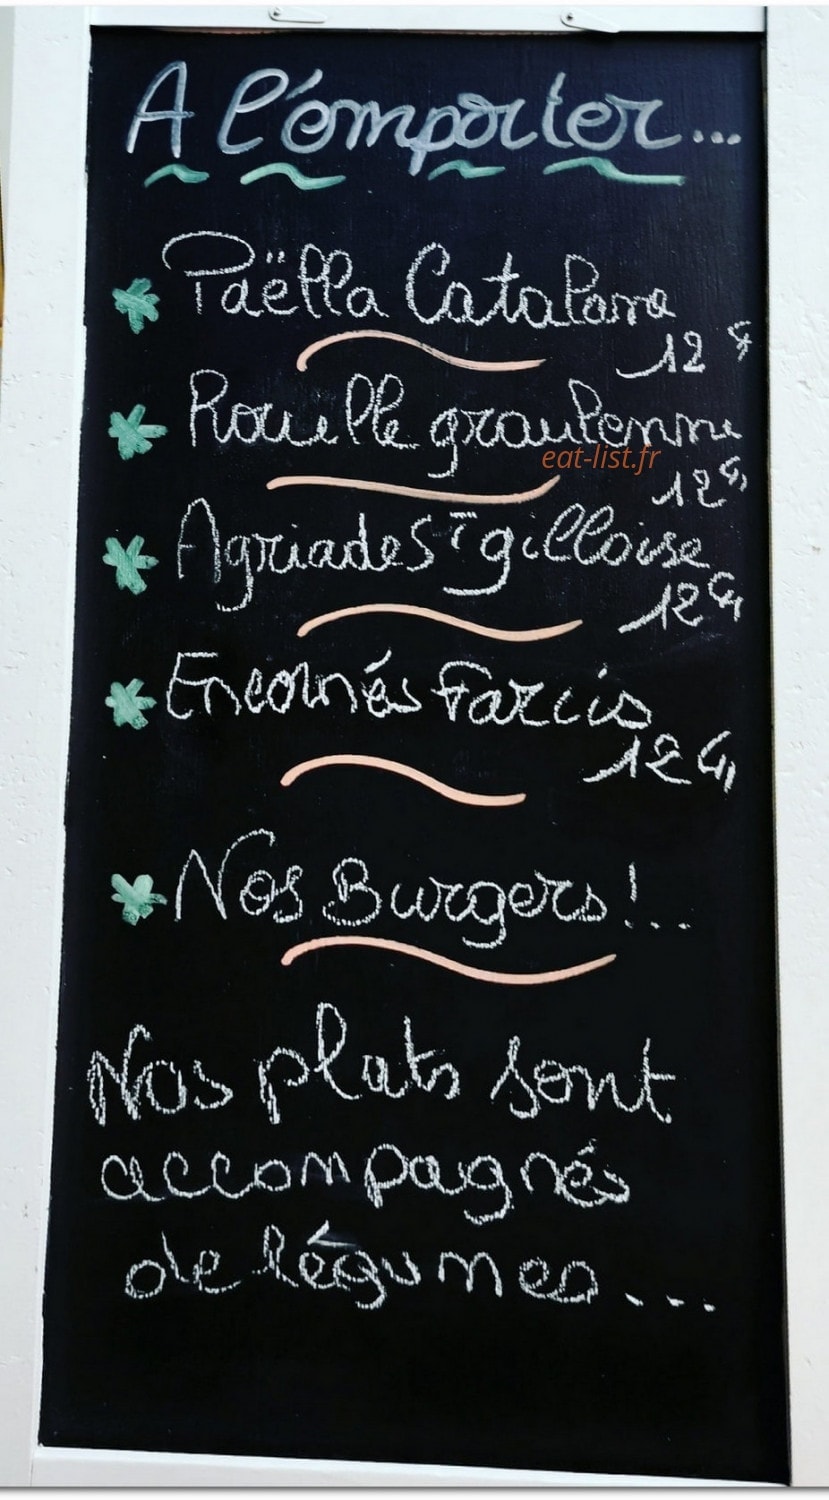 A l'émporter...
Paëlla Catalane
12 €
Rouille graulenne
eat-list.fr
12 €
Agriades St gilloise
12 €
Encornés Farcis
12 €
Nos Burgers !...
Nos plats sont
accompagnés
de légumes...